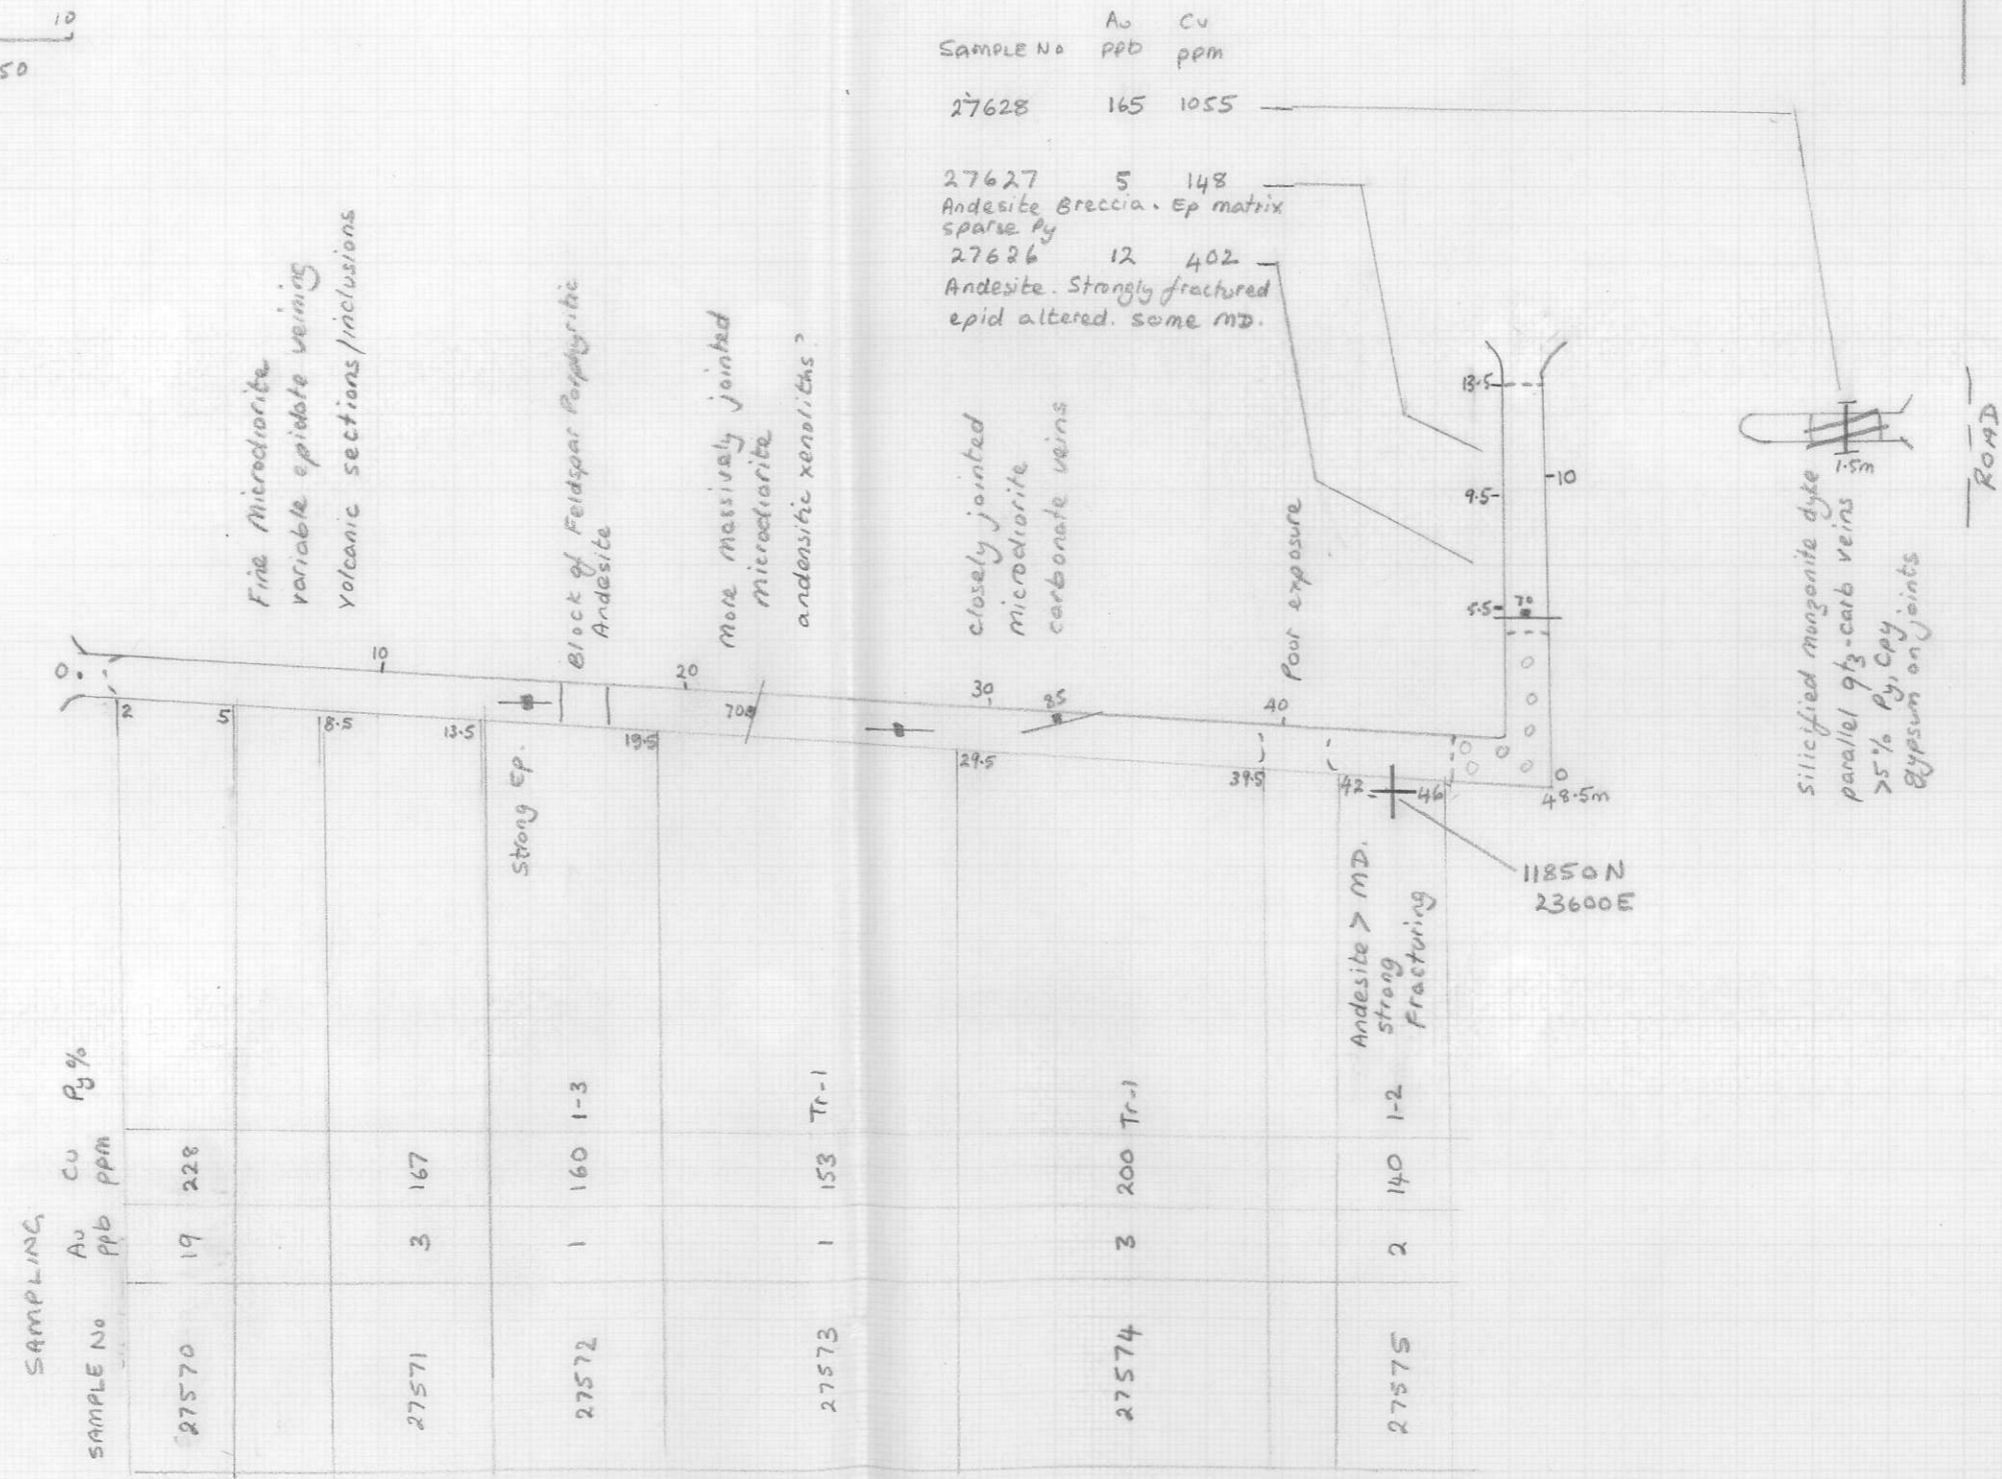 10
50
Au Cu
SAMPLE No ppb ppm
27628 165 1055
27627 5 148
Andesite Breccia. Ep matrix
sparse Py
27626 12 402
Andesite. Strongly fractured
epid altered. some MD.
Fine Microdiorite
variable epidote veining
volcanic sections/inclusions
Block of Feldspar Porphyritic
Andesite
More massively jointed
microdiorite
andensitic xenoliths?
closely jointed
microdiorite
carbonate veins
Poor exposure
13.5
10
9.5
5.5
70
1.5m
ROAD
silicified monzonite dyke
parallel qtz-carb veins
>5% Py, Cpy
gypsum on joints
0
10
20
30
40
70
85
2
5
8.5
13.5
19.5
29.5
39.5
42
46
0
48.5m
Strong Ep.
11850N
23600E
Andesite > MD.
strong
Fracturing
SAMPLING
SAMPLE No Au ppb Cu ppm Py%
27570 19 228
27571 3 167
27572 1 160 1-3
27573 1 153 Tr-1
27574 3 200 Tr-1
27575 2 140 1-2